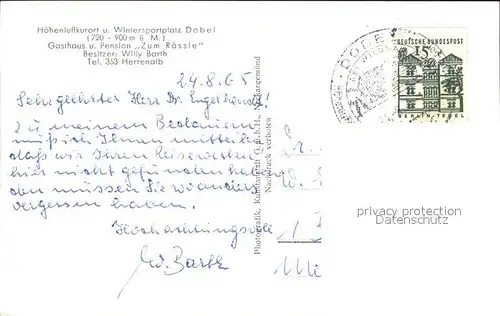 Höhenluftkurort u. Wintersportplatz Dobel
(720 - 900 m ü M.)
Gasthaus u. Pension „Zum Rössle"
Besitzer: Willy Barth
Tel. 353 Herrenalb
24.8.65
Sehr geehrter Herr Dr.
Zu meinem Bedauern
muß ich Ihnen mitteilen
daß wir Ihren
hier nicht gefunden haben
den müssen Sie wo anders
vergessen haben.
Hochachtungsvoll
W. Barth
Photografie, Kunstanstalt G.m.b.H., Neckargemünd
Nachdruck verboten
DOBEL
DEUTSCHE BUNDESPOST
15
BERLIN-TEGEL
privacy protection
Datenschutz